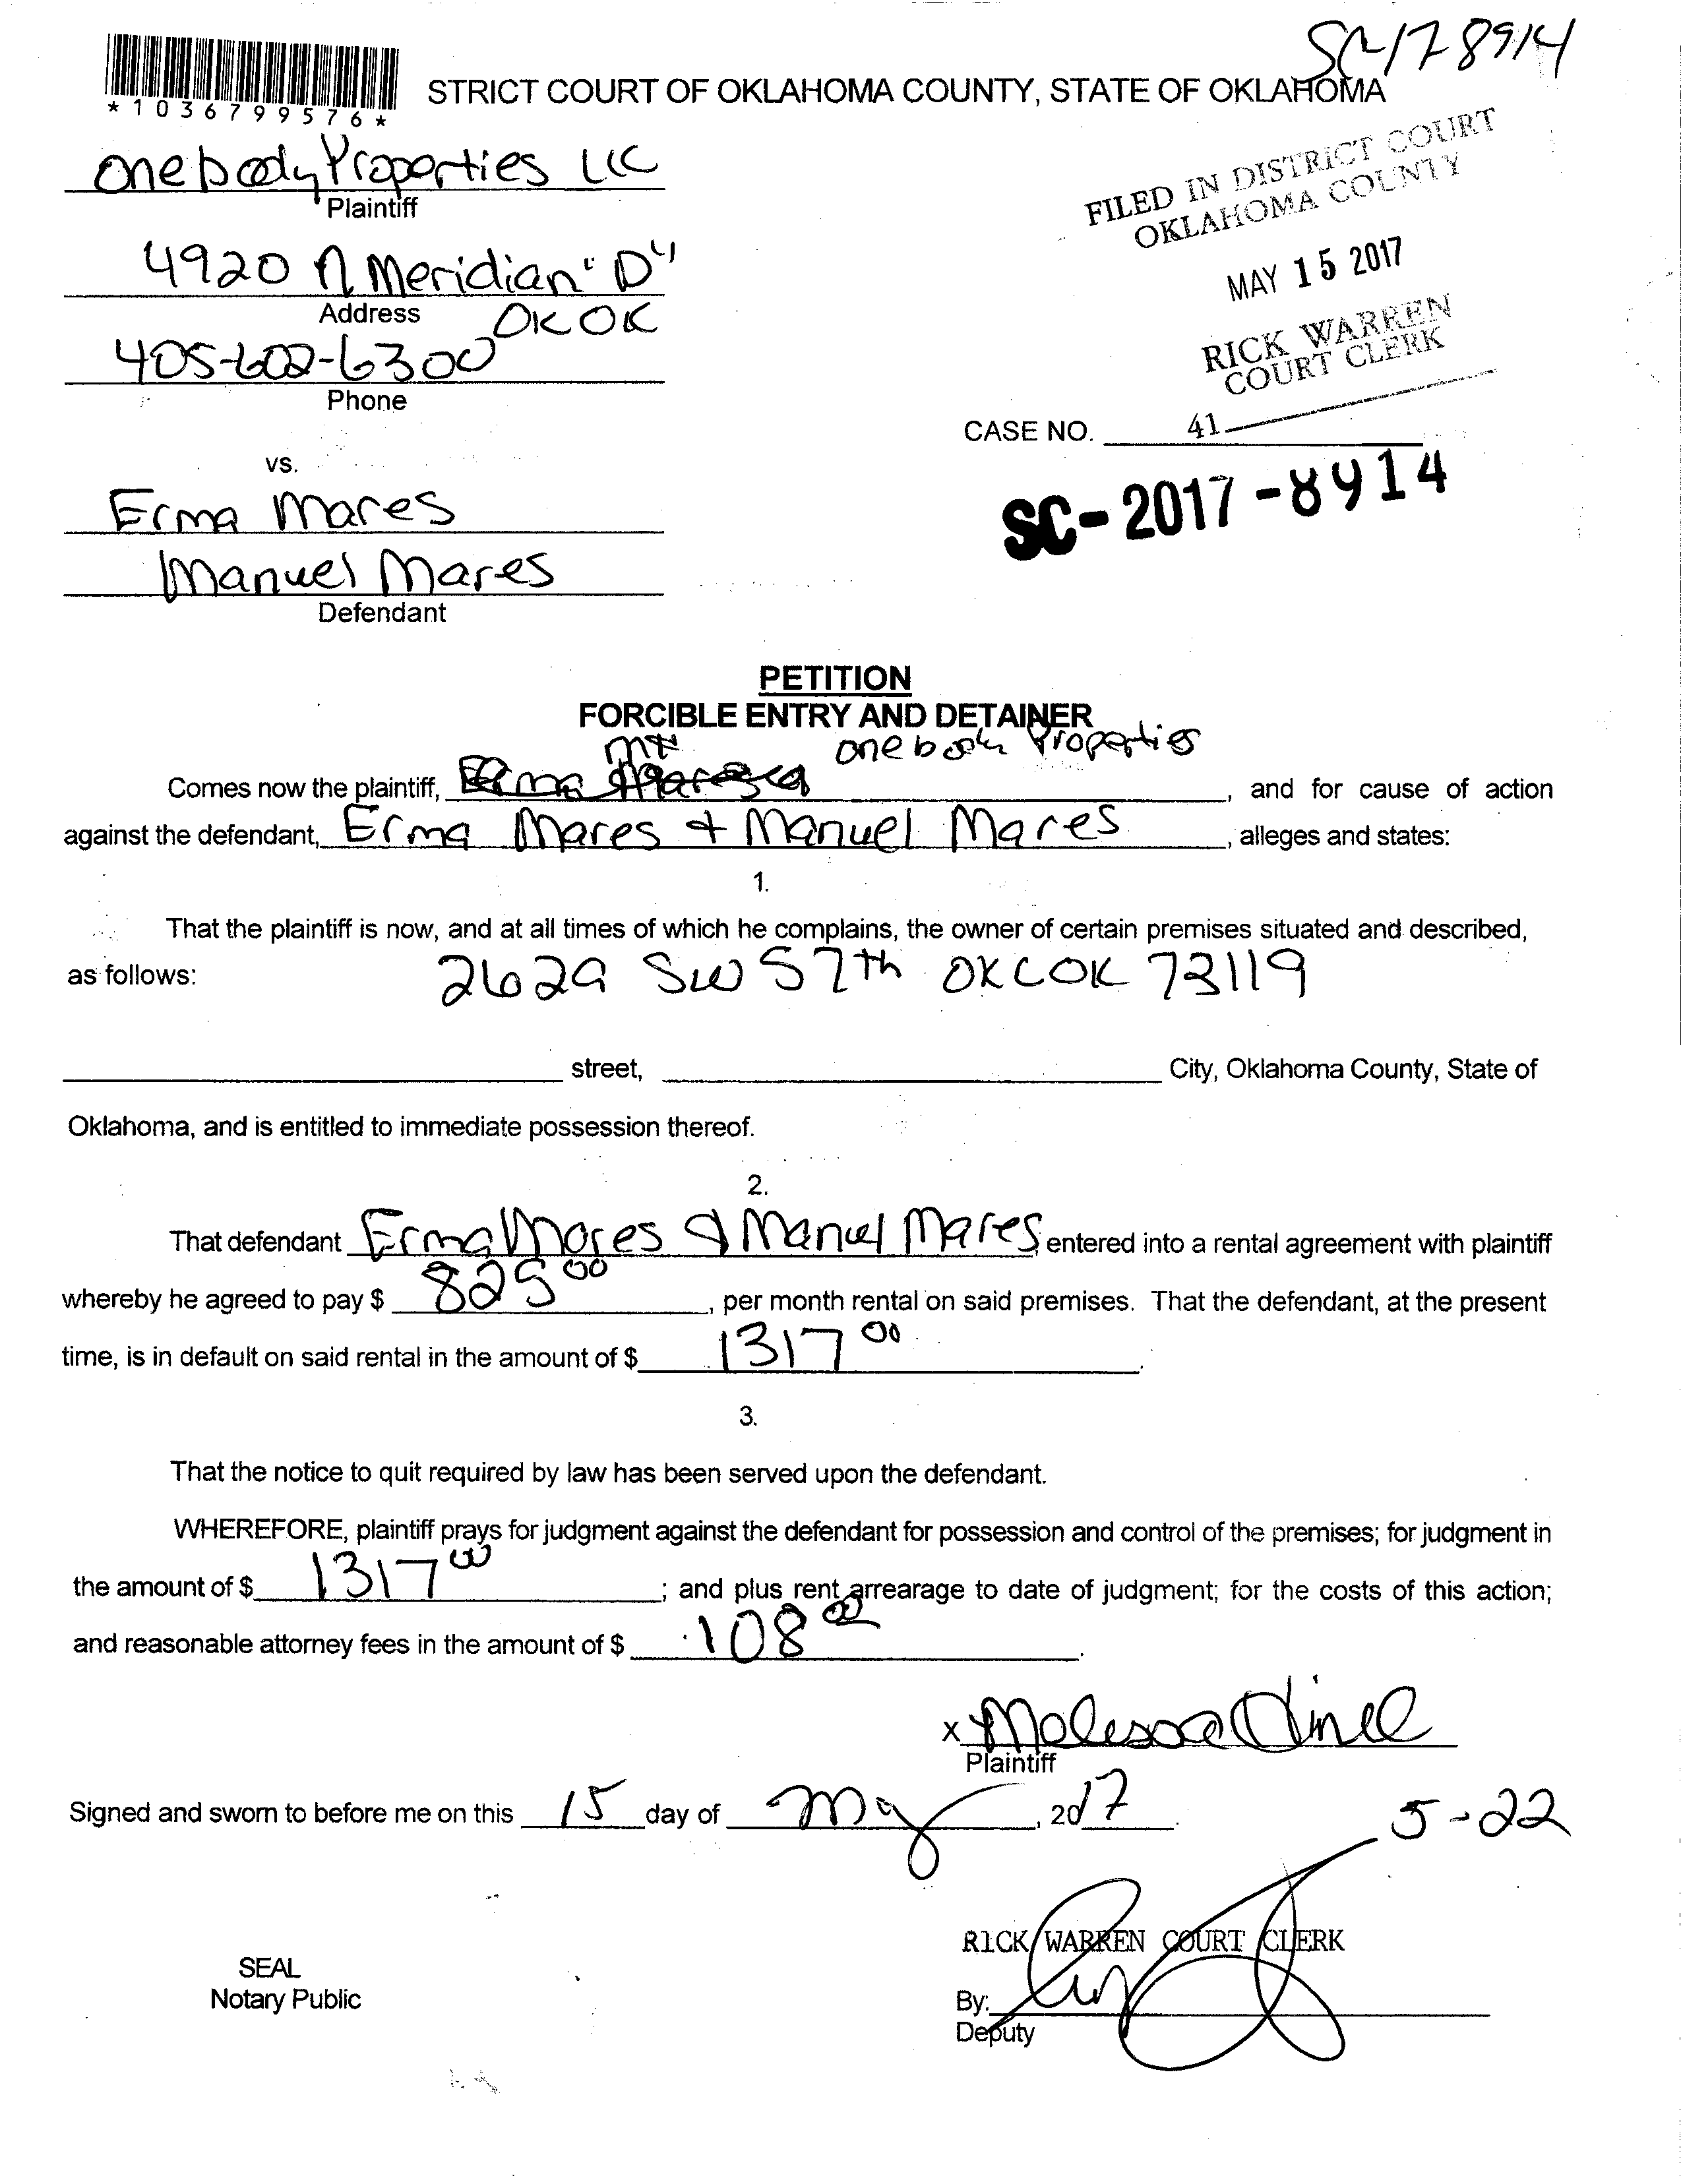 SC178914
*1036799576*
STRICT COURT OF OKLAHOMA COUNTY, STATE OF OKLAHOMA
onebody Properties LLC
Plaintiff
FILED IN DISTRICT COURT
OKLAHOMA COUNTY
4920 N Meridian "D"
Address OKOK
MAY 15 2017
405-602-6300
Phone
RICK WARREN
COURT CLERK
CASE NO. 41
vs.
SC-2017-8914
Erma Mares
Manuel Mares
Defendant
PETITION
FORCIBLE ENTRY AND DETAINER
onebody Properties
Comes now the plaintiff, , and for cause of action
against the defendant, Erma Mares + Manuel Mares, alleges and states:
1.
That the plaintiff is now, and at all times of which he complains, the owner of certain premises situated and described,
as follows: 2629 SW 57th OKCOK 73119
street, City, Oklahoma County, State of
Oklahoma, and is entitled to immediate possession thereof.
2.
That defendant Erma Mares & Manuel Mares, entered into a rental agreement with plaintiff
whereby he agreed to pay $ 825 00, per month rental on said premises. That the defendant, at the present
time, is in default on said rental in the amount of $ 1317 00.
3.
That the notice to quit required by law has been served upon the defendant.
WHEREFORE, plaintiff prays for judgment against the defendant for possession and control of the premises; for judgment in
the amount of $ 1317 00; and plus rent arrearage to date of judgment; for the costs of this action;
and reasonable attorney fees in the amount of $ 108 00.
x
Plaintiff
Signed and sworn to before me on this 15 day of May, 2017.
5-22
RICK WARREN COURT CLERK
SEAL
Notary Public
By:
Deputy